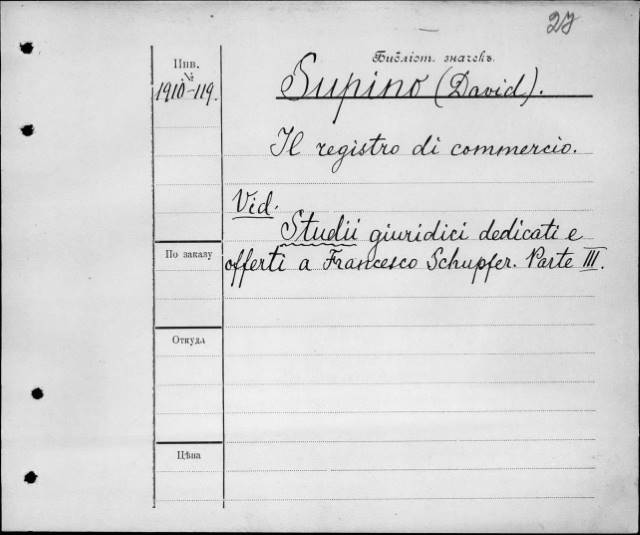 27
Инв.
№
1910-119.
Библіот. значекъ.
Supino (David).
Il registro di commercio.
Vid.
Studii giuridici dedicati e
offerti a Francesco Schupfer. Parte III.
По заказу
Откуда
Цѣна